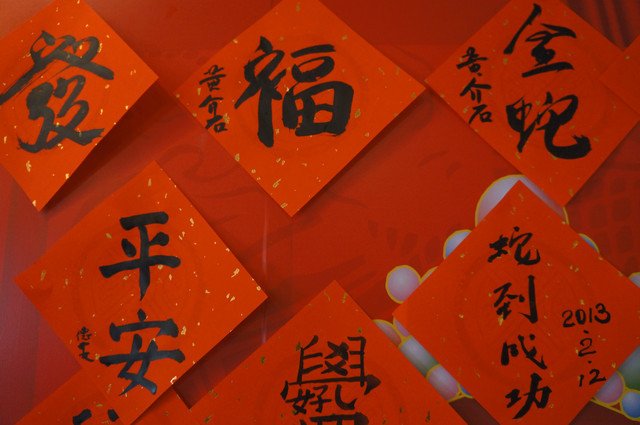 發
福
黃介石
金蛇
黃介石
平安
蛇到成功
2013.2.12